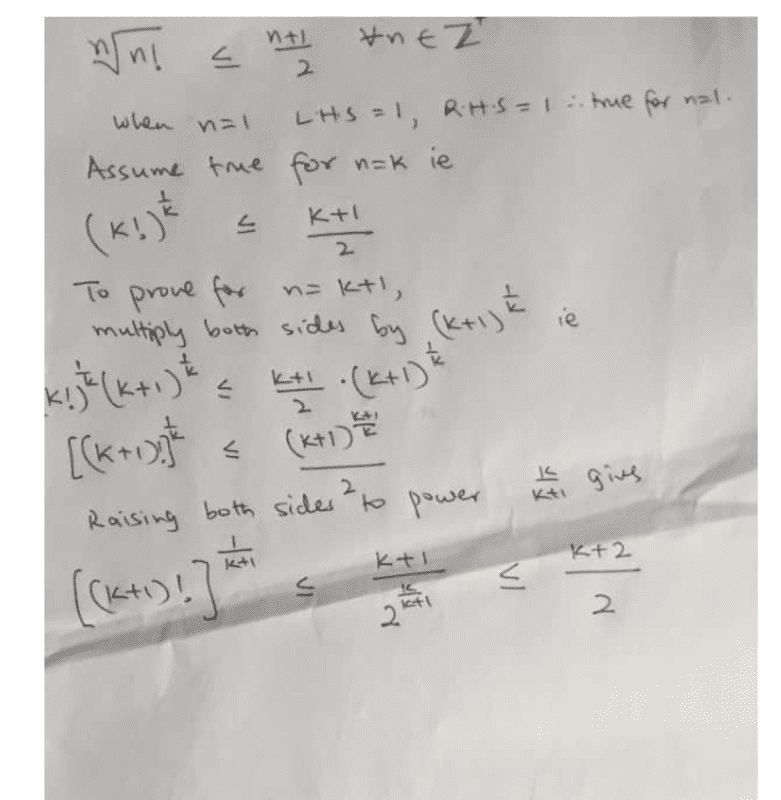 ⁿ√n! ≤ (n+1)/2 ∀n ∈ Z⁺
when n=1 L·H·S = 1, R·H·S = 1 ∴ true for n=1.
Assume true for n=k ie
(k!)^(1/k) ≤ (k+1)/2
To prove for n = k+1,
multiply both sides by (k+1)^(1/k) ie
k!)^(1/k) (k+1)^(1/k) ≤ (k+1)/2 · (k+1)^(1/k)
[(k+1)!]^(1/k) ≤ (k+1)^((k+1)/k)/2
Raising both sides to power k/(k+1) gives
[(k+1)!]^(1/(k+1)) ≤ (k+1)/2^(k/(k+1)) ≤ (k+2)/2